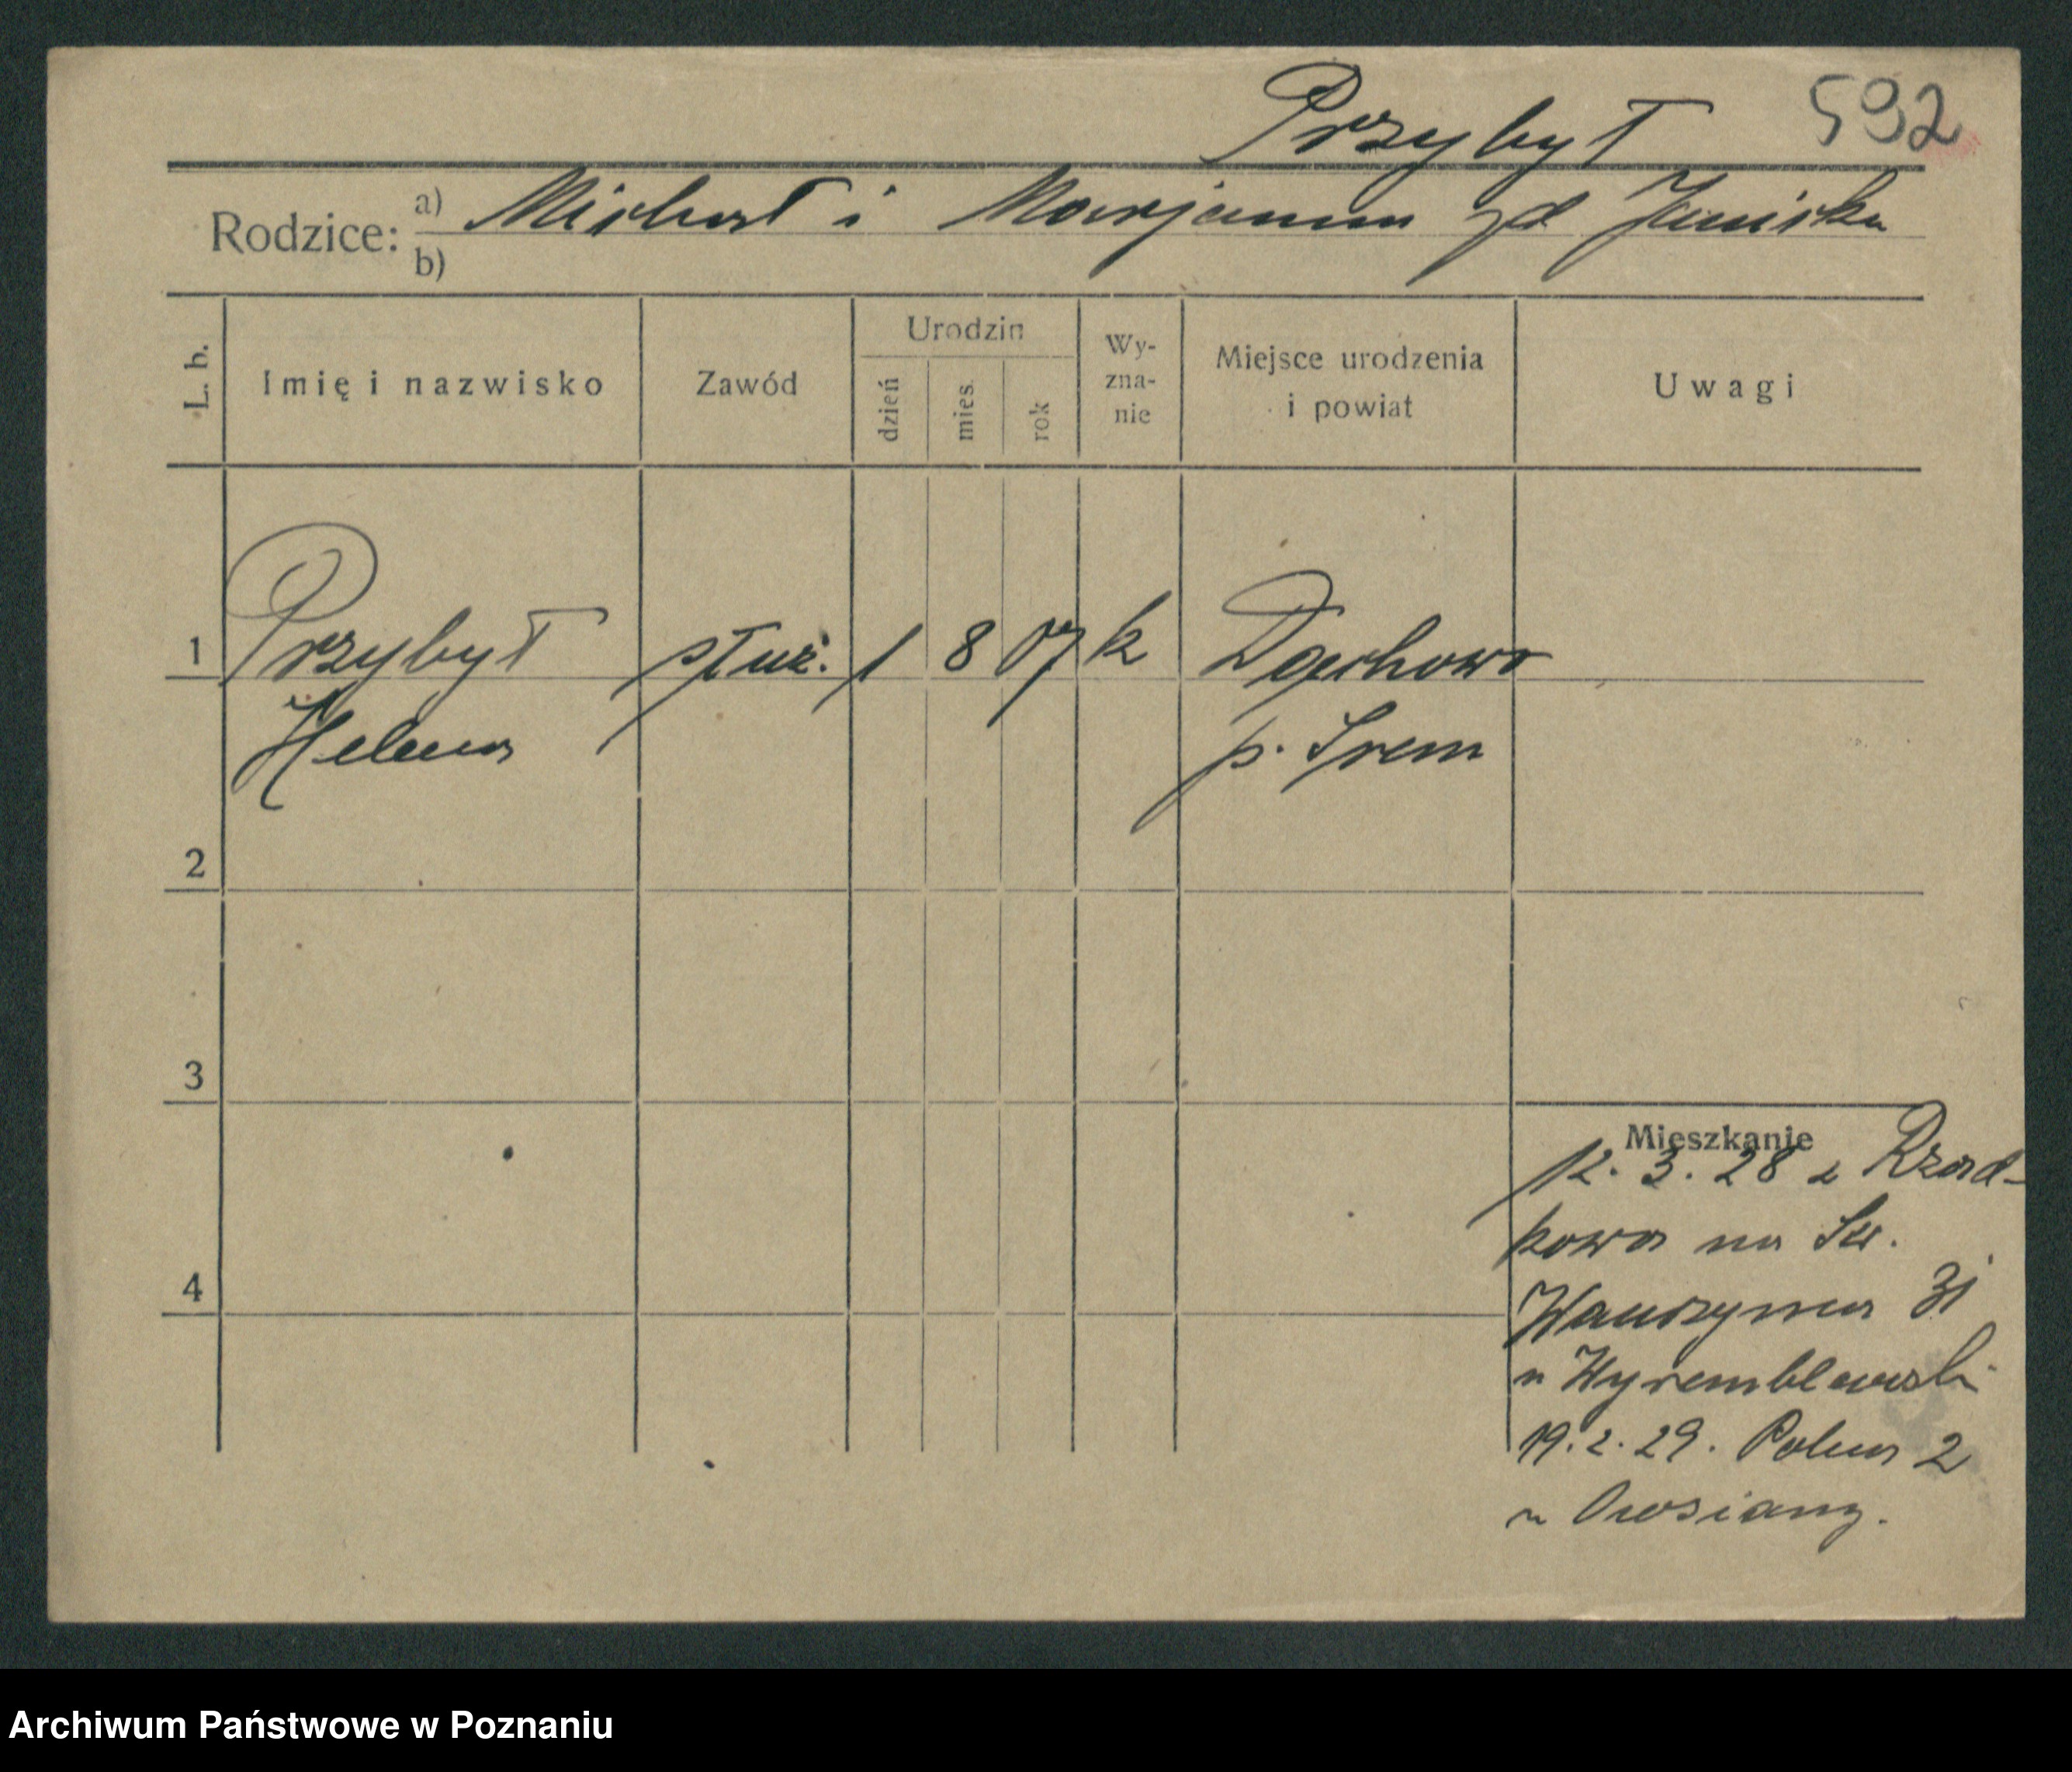 Przybył 592
Rodzice: a) Michał i Marjanna zd Janicka
b)
L. b. Imię i nazwisko Zawód Urodzin dzień mies. rok Wy-zna-nie Miejsce urodzenia i powiat Uwagi
1 Przybył służ. 1 8 07 k
Helena p. Śrem
2
3
4
Mieszkanie
12. 3. 28 z Rzad-
kowa na Św.
Wawrzyńca 31
u Wyremblewski
19. 2. 29. Polna 2
u
Archiwum Państwowe w Poznaniu